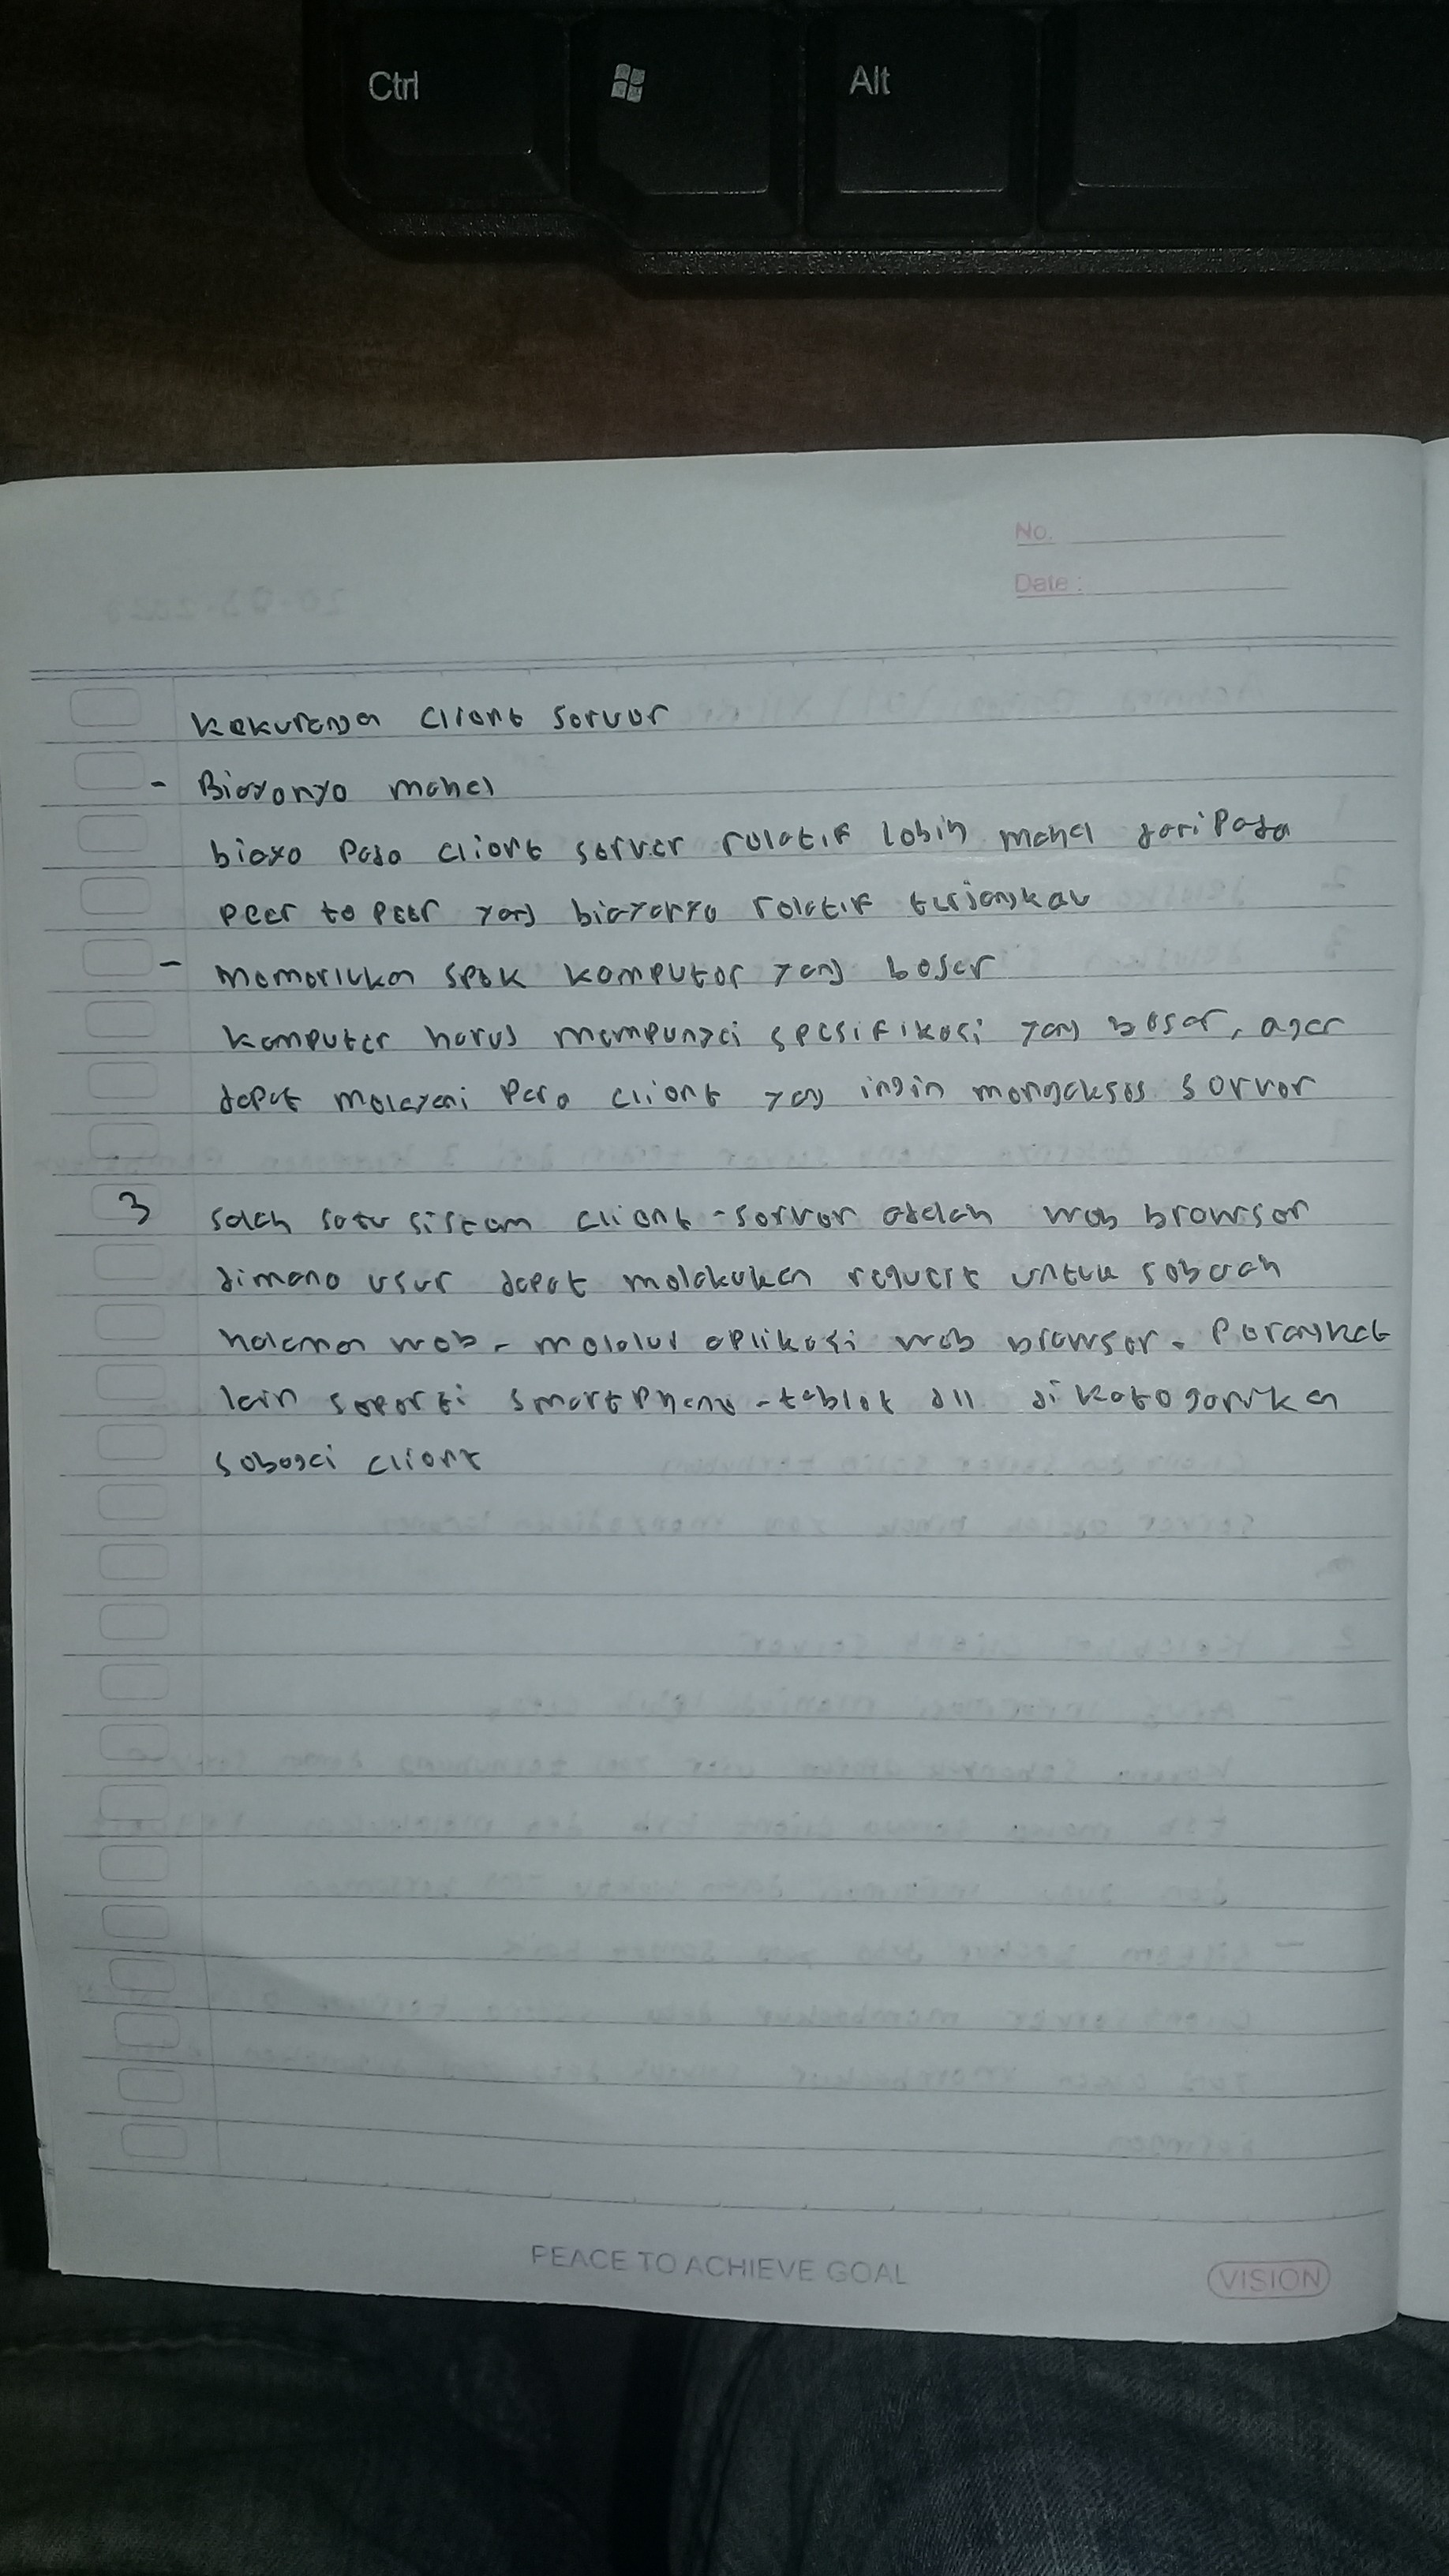 Ctrl
Alt
No.
Date :
Kekurangan client server
- Biayanya mahal
biaya pada client server relatif lebih mahal daripada
peer to peer yang biayanya relatif terjangkau
- memerlukan spek komputer yang besar
komputer harus mempunyai spesifikasi yang besar, agar
dapat melayani para client yang ingin mengakses server
3 salah satu sistem client-server adalah web browser
dimana user dapat melakukan request untuk sebuah
halaman web - melalui aplikasi web browser. Perangkat
lain seperti smartphone - tablet dll dikategorikan
sebagai client
PEACE TO ACHIEVE GOAL
VISION